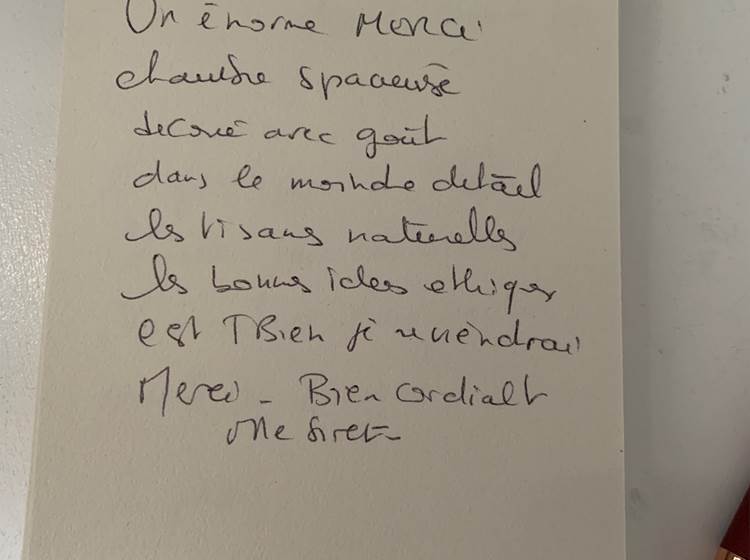 Un énorme Merci
chambre spacieuse
décoré avec goût
dans le moindre détail
les tisans naturelles
les bonnes idées ethiques
est TBien je reviendrai
Merci - Bien cordialt
Mme Siret